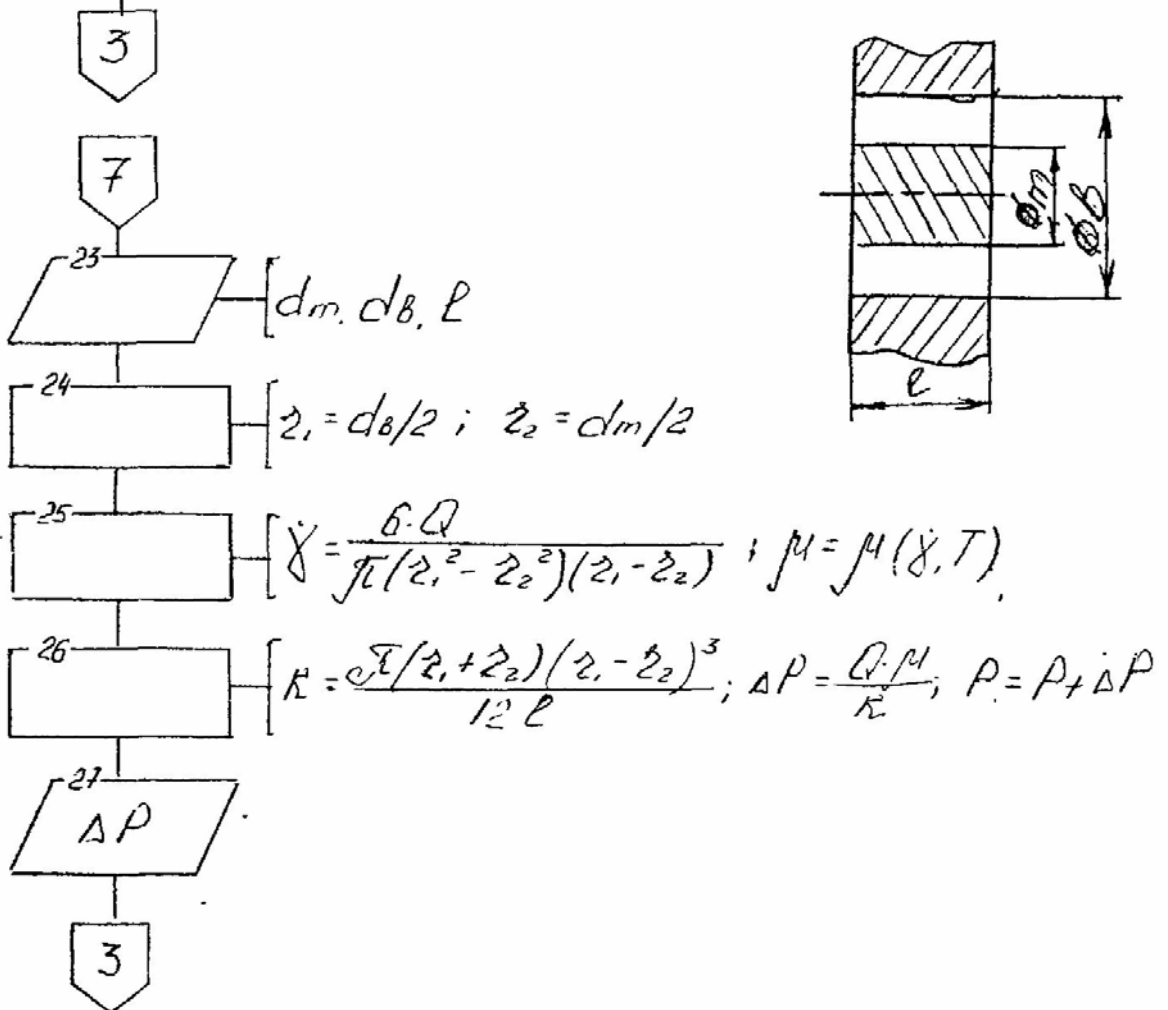 3
7
23
dт, dв, l
24
r₁ = dв/2 ; r₂ = dт/2
25
γ̇ = 6·Q / π(r₁² - r₂²)(r₁ - r₂) ; μ = μ(γ̇, T).
26
K = π(r₁ + r₂)(r₁ - r₂)³ / 12 l ; ΔP = Q·μ / K ; P = P + ΔP
27
ΔP
3
øт
øв
l